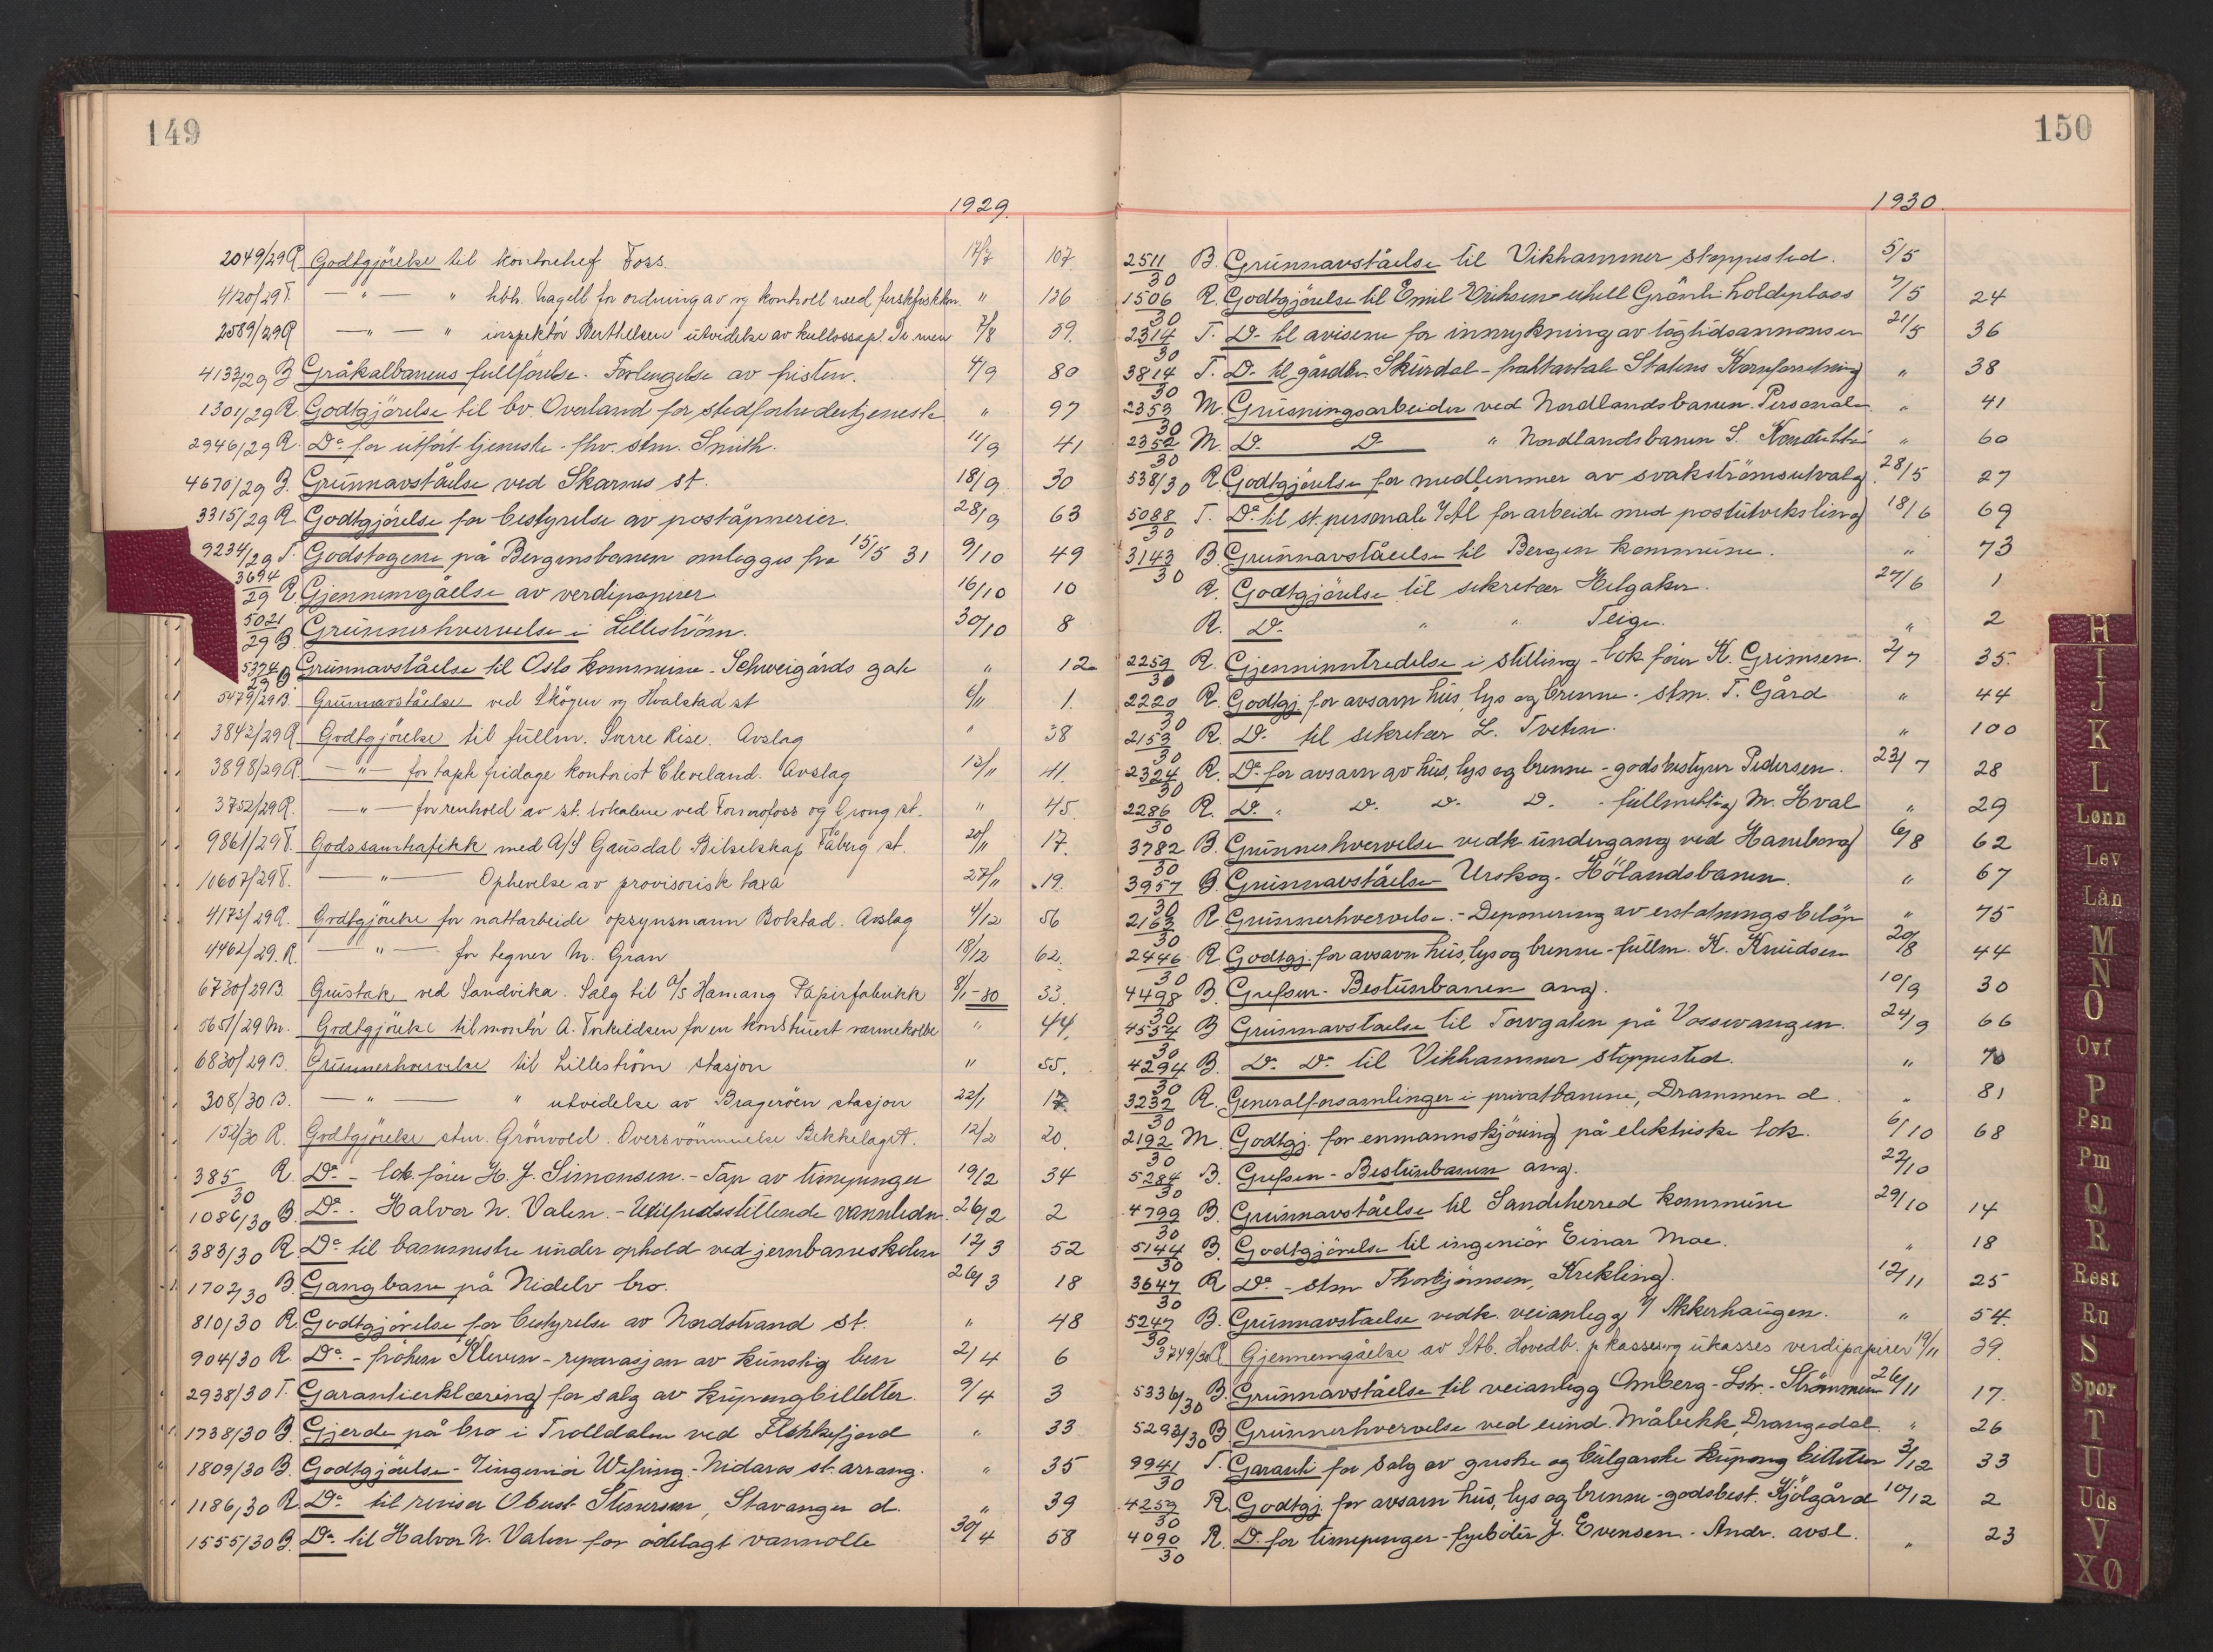 149
1929.
2049/29 R. Godtgjörelse til kontorchef Foss. 17/7 107
4120/29 T. — " — " hbh. Hagell for ordning av og kontroll med ferskfisk " 126
2589/29 R — " — " inspektör Berthelsen utvidelse av 7/8 59.
4133/29 B Gråkalbanens fullförelse. Forlengelse av fristen. 4/9 80
1301/29 R. Godtgjörelse til bv. Overland for stedfortredertjeneste " 97
2946/29 R. Do for utfört tjeneste - fhv. stm. Smith. 11/9 41
4670/29 B. Grunnavståelse ved Skarnes st. 18/9 30
3315/29 R. Godtgjörelse for bestyrelse av poståpnerier. 28/9 63
9234/29 T. Godstogene på Bergensbanen omlegges fra 15/5 31 9/10 49
3694/29 R. Gjennemgåelse av verdipapirer 16/10 10
5021/29 B Grunnerhvervelse i Lilleström. 30/10 8
5374/29 B Grunnavståelse til Oslo kommune - Schweigårds gate " 12
5479/29 B. Grunnavståelse ved Skögen og Hvalstad st 6/11 1.
3843/29 R Godtgjörelse til fullm. Sverre Rise. Avslag " 38
3898/29 R. — " — for tapte fridage kontorist Cleveland. Avslag 12/11 41.
3752/29 R. — " — for renhold av st. lokalene ved Formofoss og Grong st. " 45
9861/29 T. Godssamtrafikk med A/S Gausdal Bilselskap Fåberg st. 20/11 17.
10607/29 T. — " — Ophevelse av provisorisk taxa 27/11 19.
4173/29 R. Godtgjörelse for nattarbeide opsynsmann Bokstad. Avslag 4/12 56
4462/29. R. — " — for tegner M. Gran 18/12 62.
6730/29 B. Grustak ved Sandvika. Salg til A/S Hamang Papirfabrikk 8/1-30 33.
5651/29 M. Godtgjörelse til montör A. Torkildsen for en konstruert varmekolbe " 44.
6830/29 B Grunnerhvervelse til Lilleström stasjon " 55.
308/30 B. — " — " utvidelse av Brageröen stasjon 22/1 17
152/30 R. Godtgjörelse stm. Grönvold. Oversvömmelse Bekkelaget. 12/2 20.
385/30 R. Do - lok.förer H. J. Simensen. - Tap av timepenger 19/2 34
1086/30 B. Do. Halvor N. Valen. - Utilfredsstillende vannledn. 26/2 2
383/30 R. Do til banemestre under ophold ved jernbaneskolen 12/3 52
1702/30 B. Gangbane på Nidelv bro. 26/3 18
810/30 R. Godtgjörelse for bestyrelse av Nordstrand st. " 48
904/30 R. Do. - fröken Kleven - reparasjon av kunstig ben 2/4 6
2938/30 T. Garantierklæring for salg av kupongbilletter. 9/4 3
1738/30 B. Gjerde på bro i Trolldalen ved Flekkefjord " 33
1809/30 B. Godtgjörelse - ingeniör Wefring - Nidaros st. arrang. " 35
1186/30 R. Do til revisor Obust Stenersen, Stavanger d. " 39
1555/30 B. Do til Halvor N. Valen for ödelagt vannolle 30/4 58
150
1930.
2511/30 B. Grunnavståelse til Vikhammer stoppested. 5/5
1506/30 R. Godtgjörelse til Emil Eriksen uhell Grönli holdeplass 7/5 24
2314/30 T. Do til avisene for innrykning av togtidsannonser 21/5 36
3814/30 T. Do til gårdbr. Skurdal - fraktavtale Statens Kornforretning " 38
2353/30 M. Grusningsarbeider ved Nordlandsbanen. Personale " 41
2352/30 M. Do Do " Nordlandsbanen S. Konduktör " 60
538/30 R. Godtgjörelse for medlemmer av svakströmsutvalg. 28/5 27
5088/30 T. Do til st. personale / Ål for arbeide med postutveksling 18/6 69
3143/30 B. Grunnavståelse til Bergen kommune. " 73
R. Godtgjörelse til sekretær Helgaker. 27/6 1
R. Do " " Teige. " 2
2259/30 R. Gjeninntredelse i stilling - lok förer K. Grimsen. 2/7 35.
2220/30 R. Godtgj. for avsavn hus, lys og brenne - stm. T. Gård " 44
2153/30 R. Do til sekretær L. Tveten. " 100
2324/30 R. Do for avsavn av hus, lys og brenne - godsbestyrer Pedersen. 23/7 28
2286/30 R. Do " Do Do Do - fullmektig M. Hval " 29
3782/30 B. Grunnerhvervelse vedk undergang ved Hamborg 6/8 62
3957/30 B. Grunnavståelse Urskog-Hölandsbanen. " 67
2163/30 R. Grunnerhvervelse. - Deponering av erstatningsbelöp " 75
2446/30 R. Godtgj. for avsavn hus, lys og brenne - fullm. K. Knudsen 20/8 44
4498/30 B. Grefsen - Bestunbanen ang. 10/9 30
4554/30 B Grunnavståelse til Torvgaten på Vossevangen. 24/9 66
4294/30 B. Do Do til Vikhammer stoppested. " 70
3232/30 R. Generalforsamlinger i privatbanene, Drammen d. " 81
2192/30 M. Godtgj. for enmannskjöring på elektriske lok. 6/10 68
5284/30 B. Grefsen - Bestunbanen ang. 22/10
4799/30 B. Grunnavståelse til Sandeherred kommune 29/10 14
5144/30 B. Godtgjörelse til ingeniör Einar Moe. " 18
3647/30 R Do - stm Thorbjörnsen, Krekling. 12/11 25
5247/30 B. Grunnavståelse vedk. veianlegg / Akkerhaugen. " 54.
3749/30 R Gjennemgåelse av Stb. Hovedk. p kasses og ukasses verdipapirer 19/11 39.
5336/30 B. Grunnavståelse til veianlegg Amberg - Lstr. - Strömmen 26/11 17.
5293/30 B Grunnerhvervelse ved eiend. Måbekk, Drangedal " 26
9941/30 T. Garanti for salg av greske og bulgarske kupong billetter 3/12 33
4259/30 R. Godtgj. for avsavn hus, lys og brenne - godsbest. Kjölgård 10/12 2
4090/30 R. Do for timepenger - fyrböter J. Evensen. Andr. avsl. " 23
H
I
J
K
L
Lønn
Lev
Lån
M
N
O
Ovf
P
Psn
Pm
Q
R
Rest
Ru
S
Spor
T
U
Uds
V
XØ